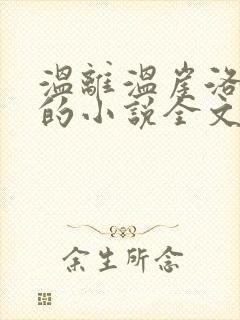 溫離溫崖洛
的小說全文
余生所念